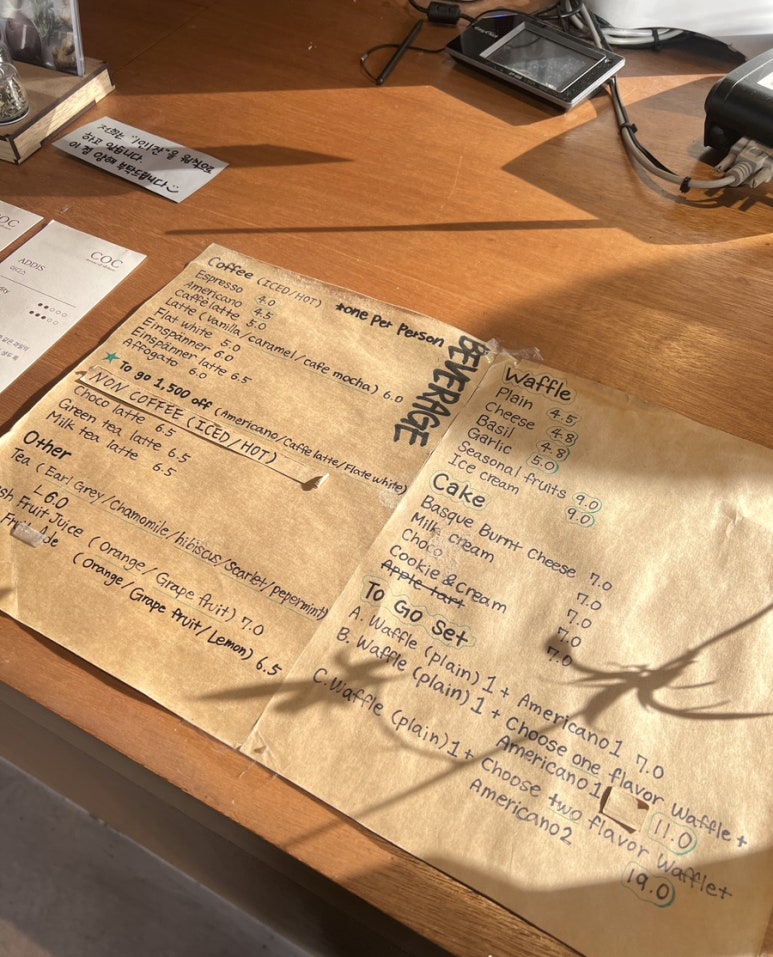 저희는 "1인1잔"을 원칙으로
하고 있습니다.
이 점 양해 부탁드립니다
COC
COC
ADDIS
아디스
Coffee (ICED/HOT)
*one per person
Espresso 4.0
Americano 4.5
Caffe latte 5.0
Latte (Vanilla/caramel/cafe mocha) 6.0
Flat white 5.0
Einspänner 6.0
Einspänner latte 6.5
Affogato 6.0
★ To go 1,500 off (Americano/Caffe latte/Flate white)
NON COFFEE (ICED/HOT)
Choco latte 6.5
Green tea latte 6.5
Milk tea latte 6.5
Other
Tea (Earl Grey/Chamomile/hibiscus/Scarlet/pepermint)
6.0
Fruit Juice (Orange/Grape fruit) 7.0
Fruit Ade (Orange/Grape fruit/Lemon) 6.5
BEVERAGE
Waffle
Plain 4.5
Cheese 4.8
Basil 4.8
Garlic 5.0
Seasonal fruits 9.0
Ice cream 9.0
Cake
Basque Burnt Cheese 7.0
Milk cream 7.0
Choco 7.0
Cookie & Cream 7.0
Apple tart 7.0
To Go Set
A. Waffle (plain) 1 + Americano 1 7.0
B. Waffle (plain) 1 + Choose one flavor Waffle +
Americano 1 11.0
C. Waffle (plain) 1 + Choose two flavor Waffle +
Americano 2 19.0